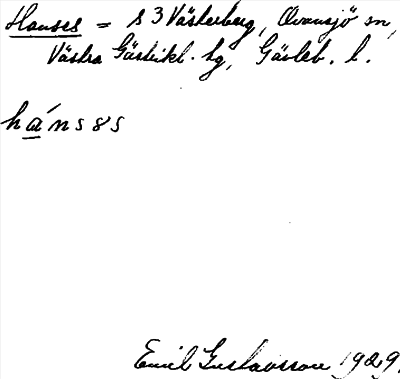 Hanses = S 3 Västerberg, Ovansjö sn,
Västra Gästrikl. hg, Gävleb. l.
hánsɜs
Emil Gustavsson 1929.